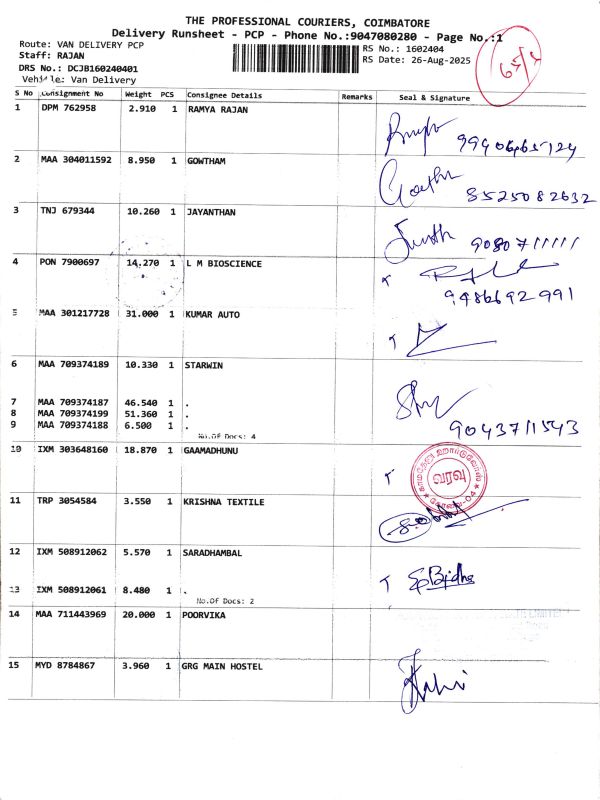 THE PROFESSIONAL COURIERS, COIMBATORE
Delivery Runsheet - PCP - Phone No.:9047080280 - Page No.:1
Route: VAN DELIVERY PCP
RS No.: 1602404
Staff: RAJAN
RS Date: 26-Aug-2025
DRS No.: DCJB160240401
Vehicle: Van Delivery
S No Consignment No Weight PCS Consignee Details Remarks Seal & Signature
1 DPM 762958 2.910 1 RAMYA RAJAN
9940665124
2 MAA 304011592 8.950 1 GOWTHAM
8525082632
3 TNJ 679344 10.260 1 JAYANTHAN
9080711111
4 PON 7900697 14.270 1 L M BIOSCIENCE
9486692991
5 MAA 301217728 31.000 1 KUMAR AUTO
6 MAA 709374189 10.330 1 STARWIN
7 MAA 709374187 46.540 1 .
8 MAA 709374199 51.360 1 .
9 MAA 709374188 6.500 1 .
9043711543
No.Of Docs: 4
10 IXM 303648160 18.870 1 GAAMADHUNU
வரவு
11 TRP 3054584 3.550 1 KRISHNA TEXTILE
12 IXM 508912062 5.570 1 SARADHAMBAL
13 IXM 508912061 8.480 1 .
No.Of Docs: 2
14 MAA 711443969 20.000 1 POORVIKA
15 MYD 8784867 3.960 1 GRG MAIN HOSTEL